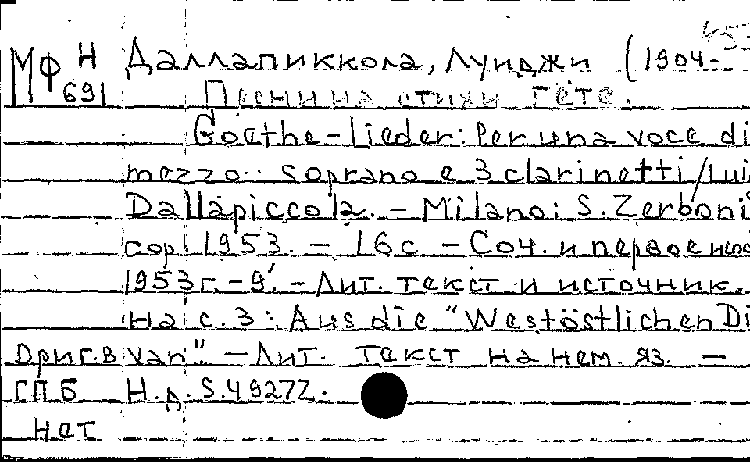 МФ Н Даллапиккола, Луиджи (1904-
691 Песни на стихи Гёте.
Goethe-Lieder: Per una voce di
mezzo-soprano e 3 clarinetti/Lui
Dallapiccola. - Milano: S. Zerboni
cop. 1953. - 16 с. - Соч. и первое
1953 г. - 9'. - Лит. текст и источник.
на с. 3: Aus die "Westöstlichen Di
Ориг. в van" - Лит. текст на нем. яз. -
ГПБ Н.д. S. 4927 Z.
нет